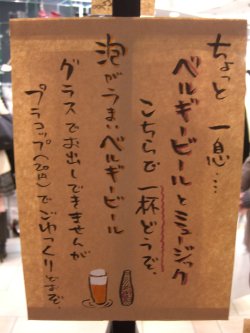 ちょっと一息…
ベルギービールとミュージック
こちらで一杯どうぞ。
泡がうまいベルギービール
グラスでお出しできませんが
プラコップ(20円)でごゆっくりどうぞ。